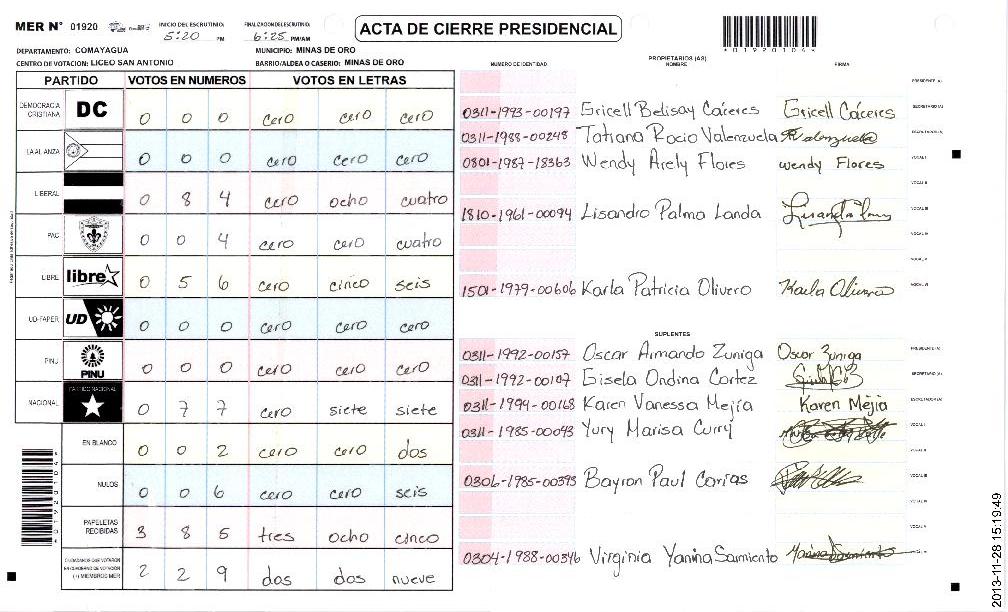 MER N° 01920 INICIO DEL ESCRUTINIO: 5:20 PM FINALIZACION DEL ESCRUTINIO: 6:25 PM/AM
ACTA DE CIERRE PRESIDENCIAL
*01920104*
DEPARTAMENTO: COMAYAGUA MUNICIPIO: MINAS DE ORO
CENTRO DE VOTACION: LICEO SAN ANTONIO BARRIO/ALDEA O CASERIO: MINAS DE ORO
PARTIDO VOTOS EN NUMEROS VOTOS EN LETRAS
DEMOCRACIA CRISTIANA DC 0 0 0 cero cero cero
LA ALIANZA 0 0 0 cero cero cero
LIBERAL 0 8 4 cero ocho cuatro
PAC 0 0 4 cero cero cuatro
LIBRE libre 0 5 6 cero cinco seis
UD-FAPER UD 0 0 0 cero cero cero
PINU PINU 0 0 0 cero cero cero
NACIONAL PARTIDO NACIONAL 0 7 7 cero siete siete
EN BLANCO 0 0 2 cero cero dos
NULOS 0 0 6 cero cero seis
PAPELETAS RECIBIDAS 3 8 5 tres ocho cinco
CIUDADANOS QUE VOTARON EN CUADERNO DE VOTACIÓN (+) MIEMBROS MER 2 2 9 dos dos nueve
NUMERO DE IDENTIDAD PROPIETARIOS (AS) NOMBRE FIRMA
PRESIDENTE (A)
0311-1993-00197 Gricell Belisay Cáceres Gricell Cáceres SECRETARIO (A)
0311-1988-00248 Tatiana Rocio Valenzuela ESCRUTADOR (A)
0801-1987-18363 Wendy Arely Flores wendy Flores VOCAL I
VOCAL II
1810-1961-00094 Lisandro Palma Landa VOCAL III
VOCAL IV
VOCAL V
1501-1979-00606 Karla Patricia Olivero Karla Olivero VOCAL VI
SUPLENTES
0311-1992-00157 Oscar Armando Zuniga Oscar Zuniga PRESIDENTE (A)
0311-1992-00107 Gisela Ondina Cortez SECRETARIO (A)
0311-1994-00168 Karen Vanessa Mejía Karen Mejia ESCRUTADOR (A)
0311-1985-00043 Yury Marisa Curry VOCAL I
VOCAL II
0306-1985-00393 Bayron Paul Corias VOCAL III
VOCAL IV
VOCAL V
0304-1988-00346 Virginia Yanina Sarmiento Yanina Sarmiento
2013-11-28 15:19:49